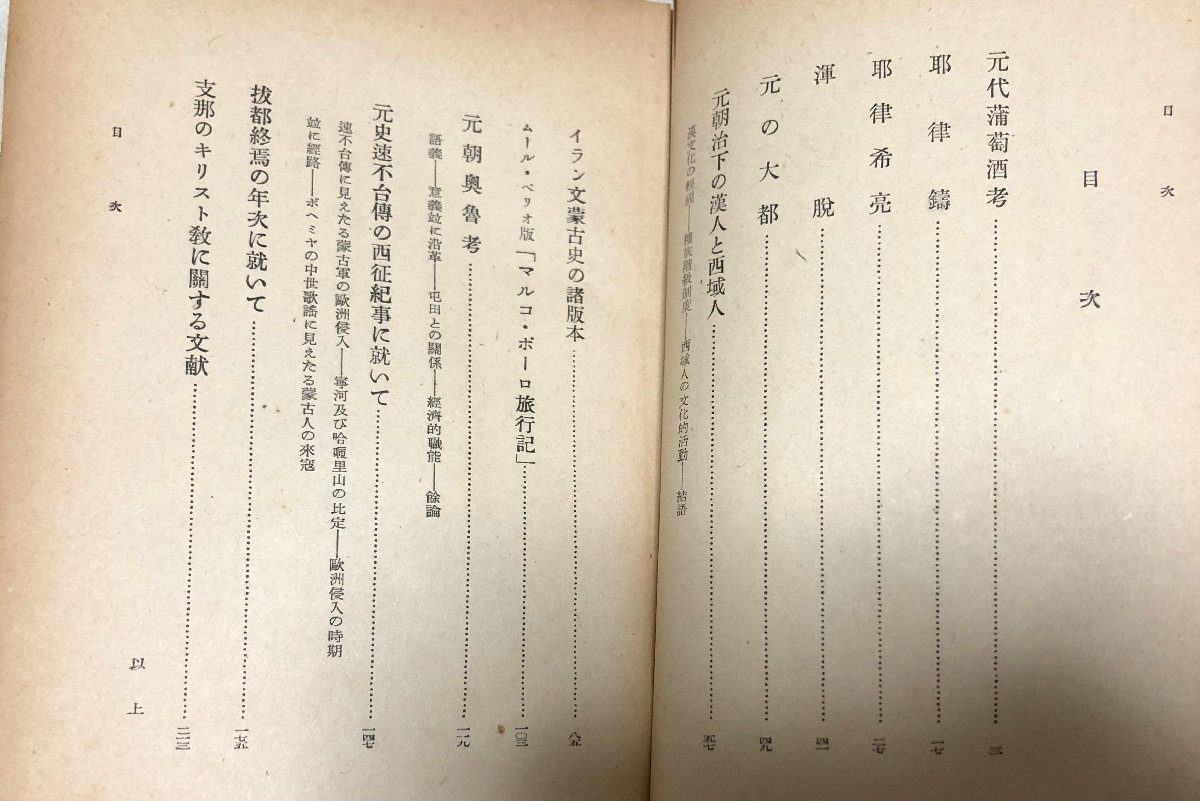 目次
目次
元代蒲萄酒考………三
耶律鑄………一七
耶律希亮………二七
渾脫………四一
元の大都………四九
元朝治下の漢人と西域人………五七
漢文化の輕視――種族階級制度――西域人の文化的活動――結語
イラン文蒙古史の諸版本………八五
ムール・ペリオ版「マルコ・ポーロ旅行記」………一〇三
元朝奧魯考………一一九
語義――意義竝に沿革――屯田との關係――經濟的職能――餘論
元史速不台傳の西征紀事に就いて………一四七
速不台傳に見えたる蒙古軍の歐洲侵入――寧河及び哈咂里山の比定――歐洲侵入の時期
竝に經路――ボヘミヤの中世歌謠に見えたる蒙古人の來寇
拔都終焉の年次に就いて………一七五
支那のキリスト敎に關する文献………二一三
以上
目次